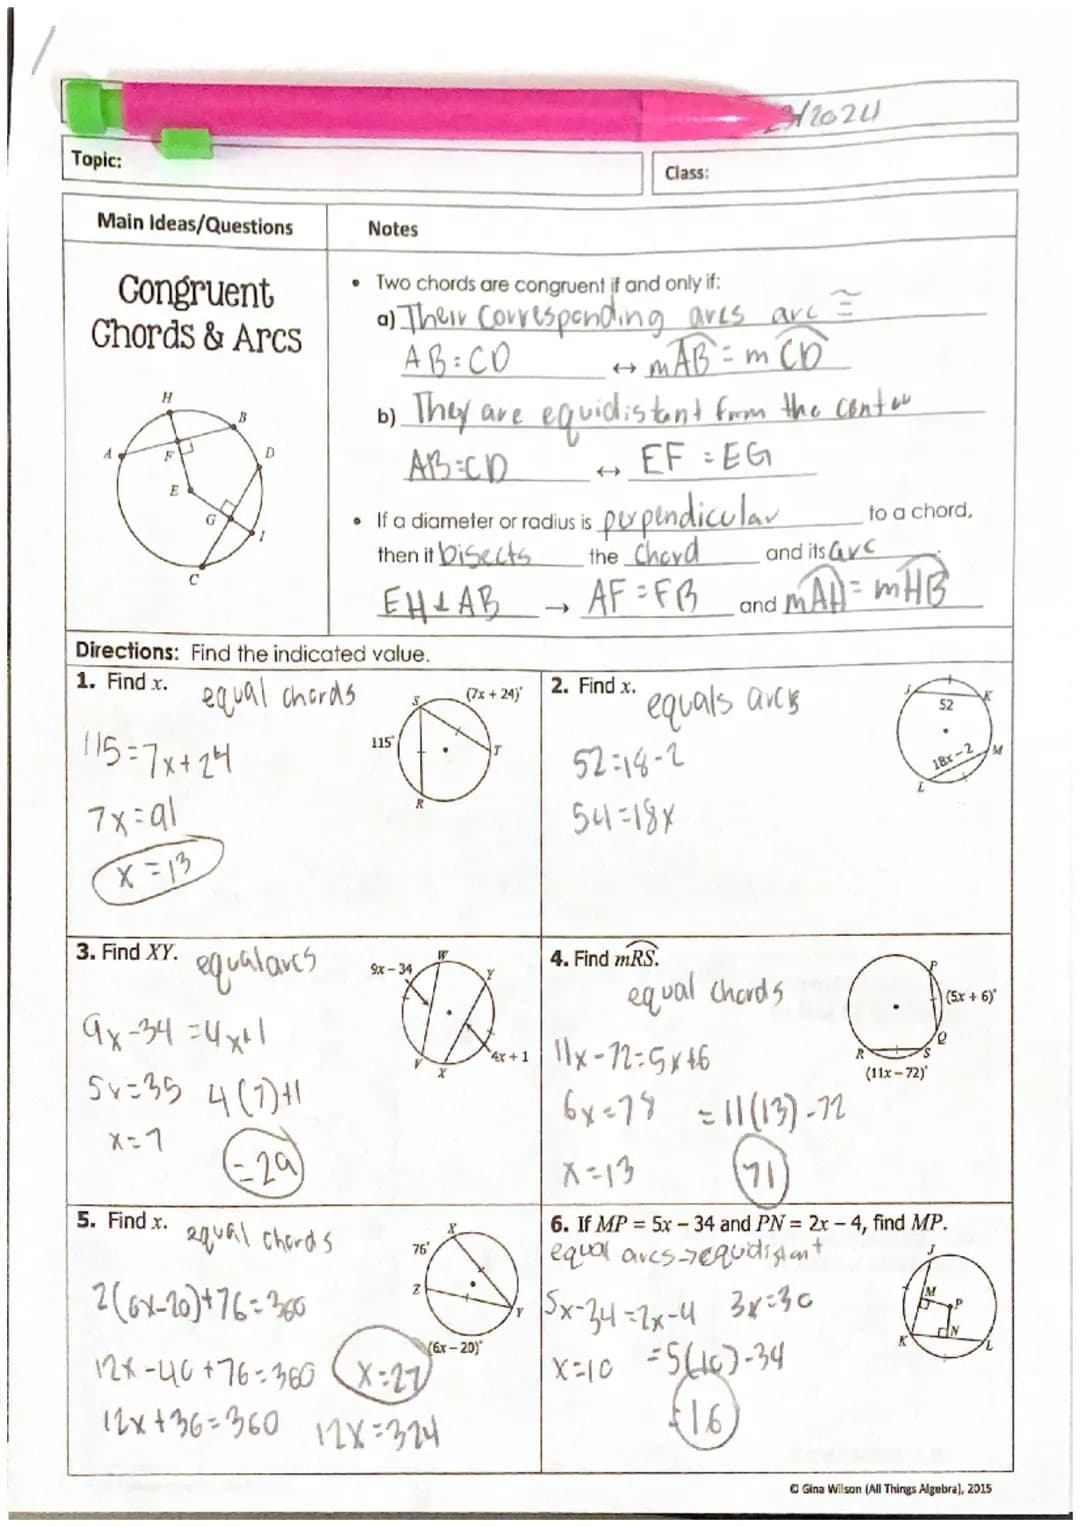 23/2024
Topic:
Class:
Main Ideas/Questions
Notes
Congruent
Chords & Arcs
H
B
A
F
D
E
G
I
C
• Two chords are congruent if and only if:
a) Their Corresponding arcs arc ≅
AB = CD ↔ mAB = m CD
b) They are equidistant from the center
AB=CD ↔ EF = EG
• If a diameter or radius is perpendicular to a chord,
then it bisects the chord and its arc.
EH⊥AB → AF = FB and mAH = mHB
Directions: Find the indicated value.
1. Find x. equal chords
(7x + 24)°
S
115°
T
R
115=7x+24
7x=91
x=13
2. Find x. equals arcs
J
K
52
M
18x – 2
L
52=18-2
54=18x
3. Find XY. equal arcs
9x – 34
W
Y
4x + 1
V
X
9x-34=4x+1
5x=35 4(7)+1
x=7
=29
4. Find mRS.
equal chords
P
(5x + 6)°
Q
R
S
(11x – 72)°
11x-72=5x+6
6x=78 =11(13)-72
x=13 71
5. Find x. equal chords
X
76°
Z
Y
(6x – 20)°
2(6x-20)+76=360
12x-40+76=360 x=27
12x+36=360 12x=324
6. If MP = 5x – 34 and PN = 2x – 4, find MP.
equal arcs→equidistant
J
M
P
K
N
L
5x-34=2x-4 3x=30
x=10 =5(10)-34
=16
© Gina Wilson (All Things Algebra), 2015